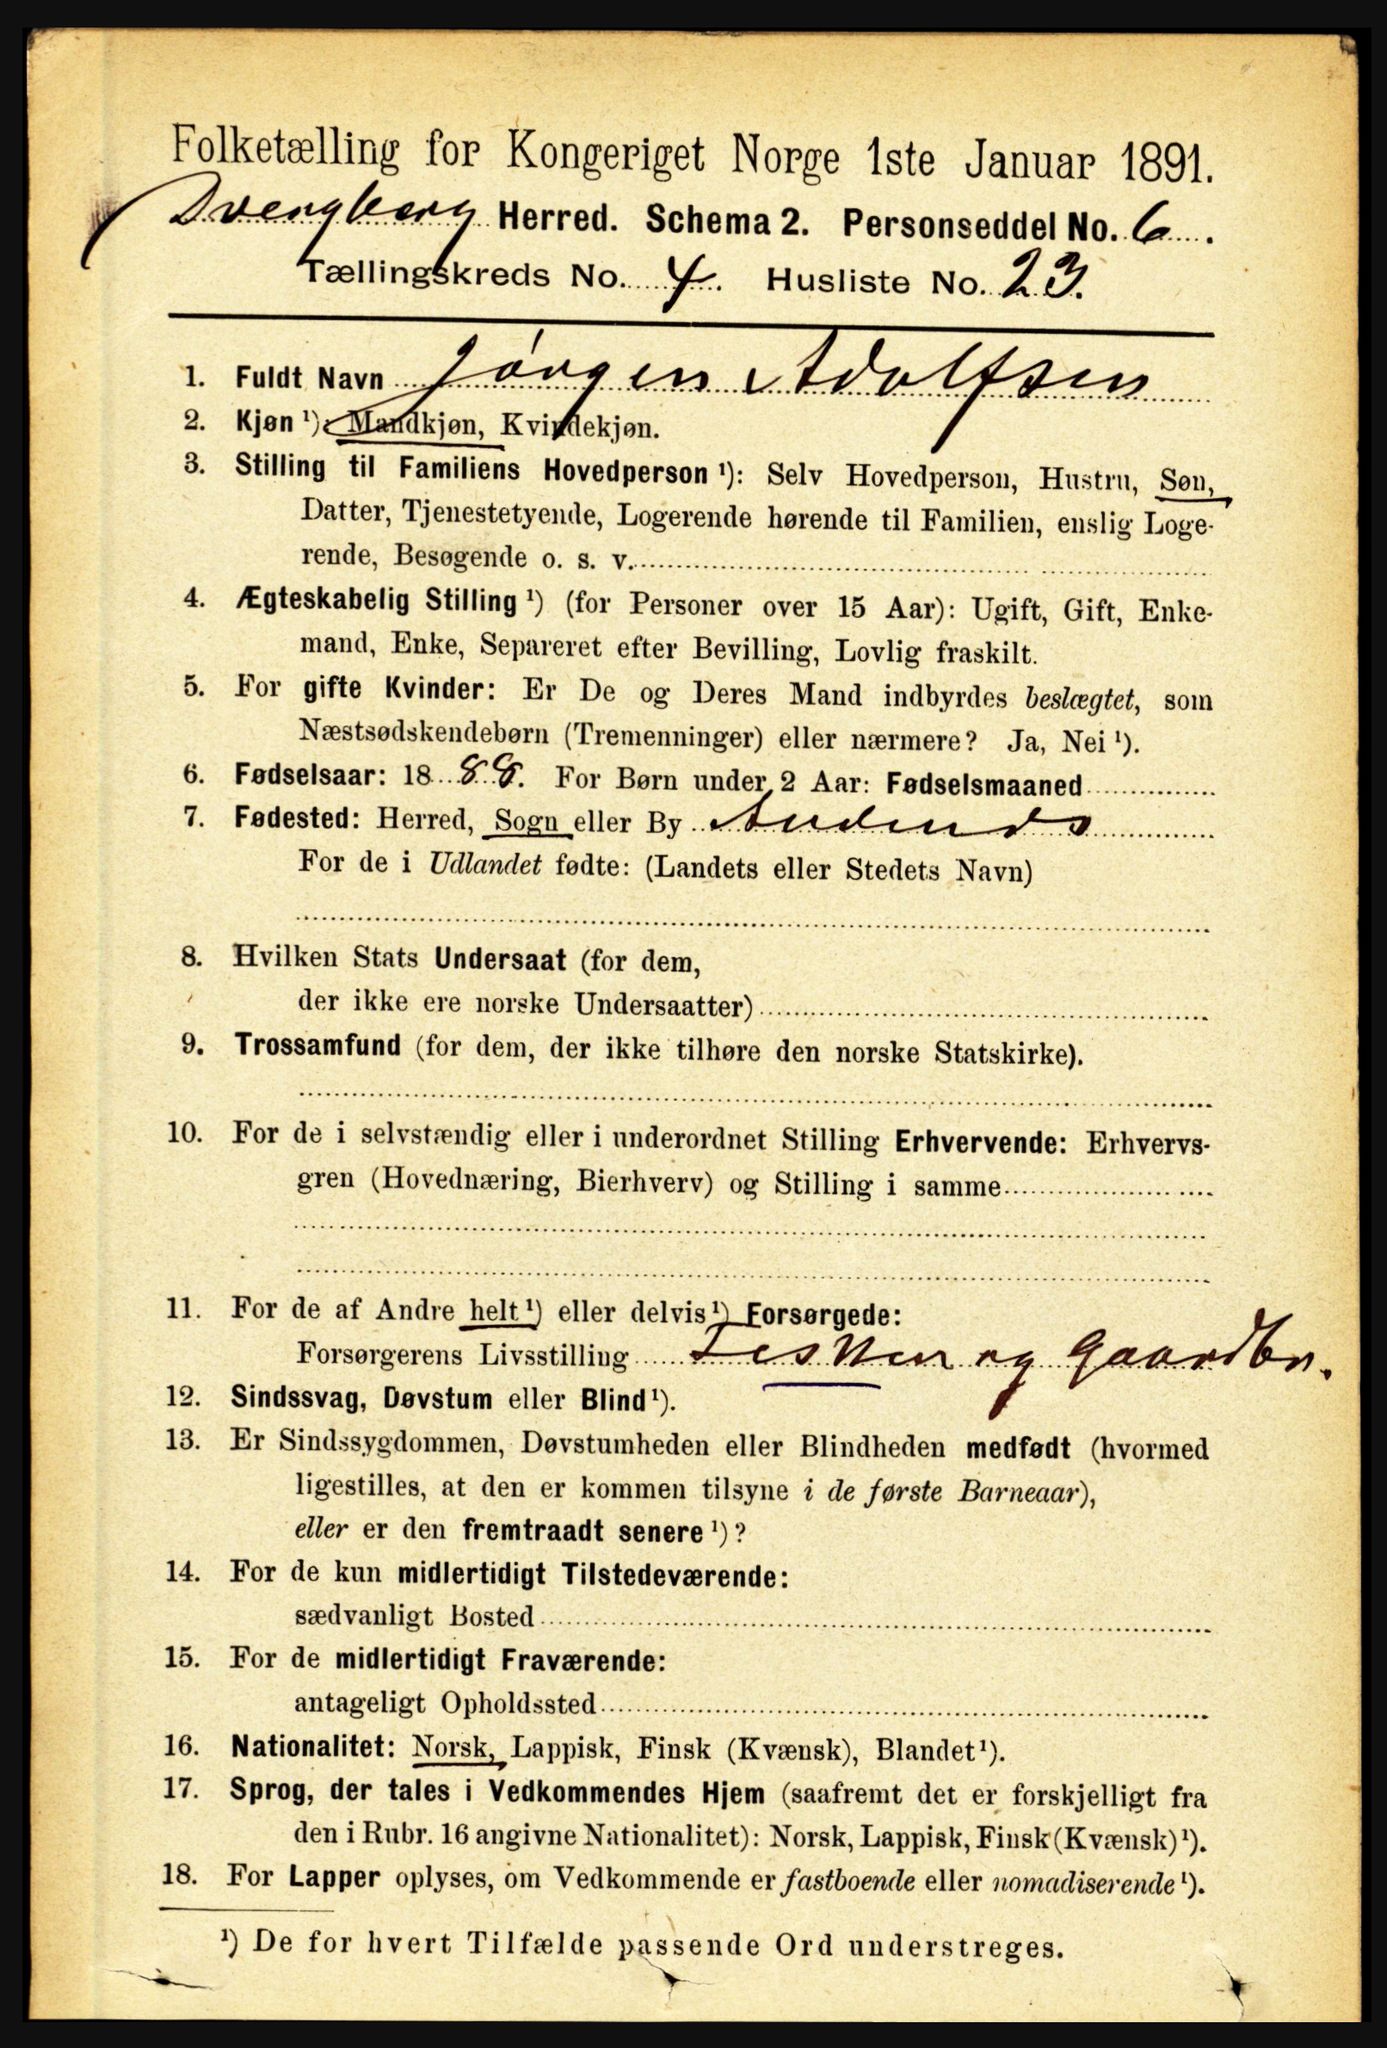 Folketælling for Kongeriget Norge 1ste Januar 1891.
Dvergberg Herred. Schema 2. Personseddel No. 6.
Tællingskreds No. 4. Husliste No. 23.
1. Fuldt Navn Jörgen Adolfsen
2. Kjøn ¹): Mandkjøn, Kvindekjøn.
3. Stilling til Familiens Hovedperson ¹): Selv Hovedperson, Hustru, Søn,
Datter, Tjenestetyende, Logerende hørende til Familien, enslig Loge-
rende, Besøgende o. s. v.
4. Ægteskabelig Stilling ¹) (for Personer over 15 Aar): Ugift, Gift, Enke-
mand, Enke, Separeret efter Bevilling, Lovlig fraskilt.
5. For gifte Kvinder: Er De og Deres Mand indbyrdes beslægtet, som
Næstsødskendebørn (Tremenninger) eller nærmere? Ja, Nei ¹).
6. Fødselsaar: 1888. For Børn under 2 Aar: Fødselsmaaned
7. Fødested: Herred, Sogn eller By Andenes
For de i Udlandet fødte: (Landets eller Stedets Navn)
8. Hvilken Stats Undersaat (for dem,
der ikke ere norske Undersaatter)
9. Trossamfund (for dem, der ikke tilhøre den norske Statskirke).
10. For de i selvstændig eller i underordnet Stilling Erhvervende: Erhvervs-
gren (Hovednæring, Bierhverv) og Stilling i samme
11. For de af Andre helt ¹) eller delvis ¹) Forsørgede:
Forsørgerens Livsstilling Fisker og Gaardbr.
12. Sindssvag, Døvstum eller Blind ¹).
13. Er Sindssygdommen, Døvstumheden eller Blindheden medfødt (hvormed
ligestilles, at den er kommen tilsyne i de første Barneaar),
eller er den fremtraadt senere ¹)?
14. For de kun midlertidigt Tilstedeværende:
sædvanligt Bosted
15. For de midlertidigt Fraværende:
antageligt Opholdssted
16. Nationalitet: Norsk, Lappisk, Finsk (Kvænsk), Blandet ¹).
17. Sprog, der tales i Vedkommendes Hjem (saafremt det er forskjelligt fra
den i Rubr. 16 angivne Nationalitet): Norsk, Lappisk, Finsk (Kvænsk) ¹).
18. For Lapper oplyses, om Vedkommende er fastboende eller nomadiserende ¹).
¹) De for hvert Tilfælde passende Ord understreges.